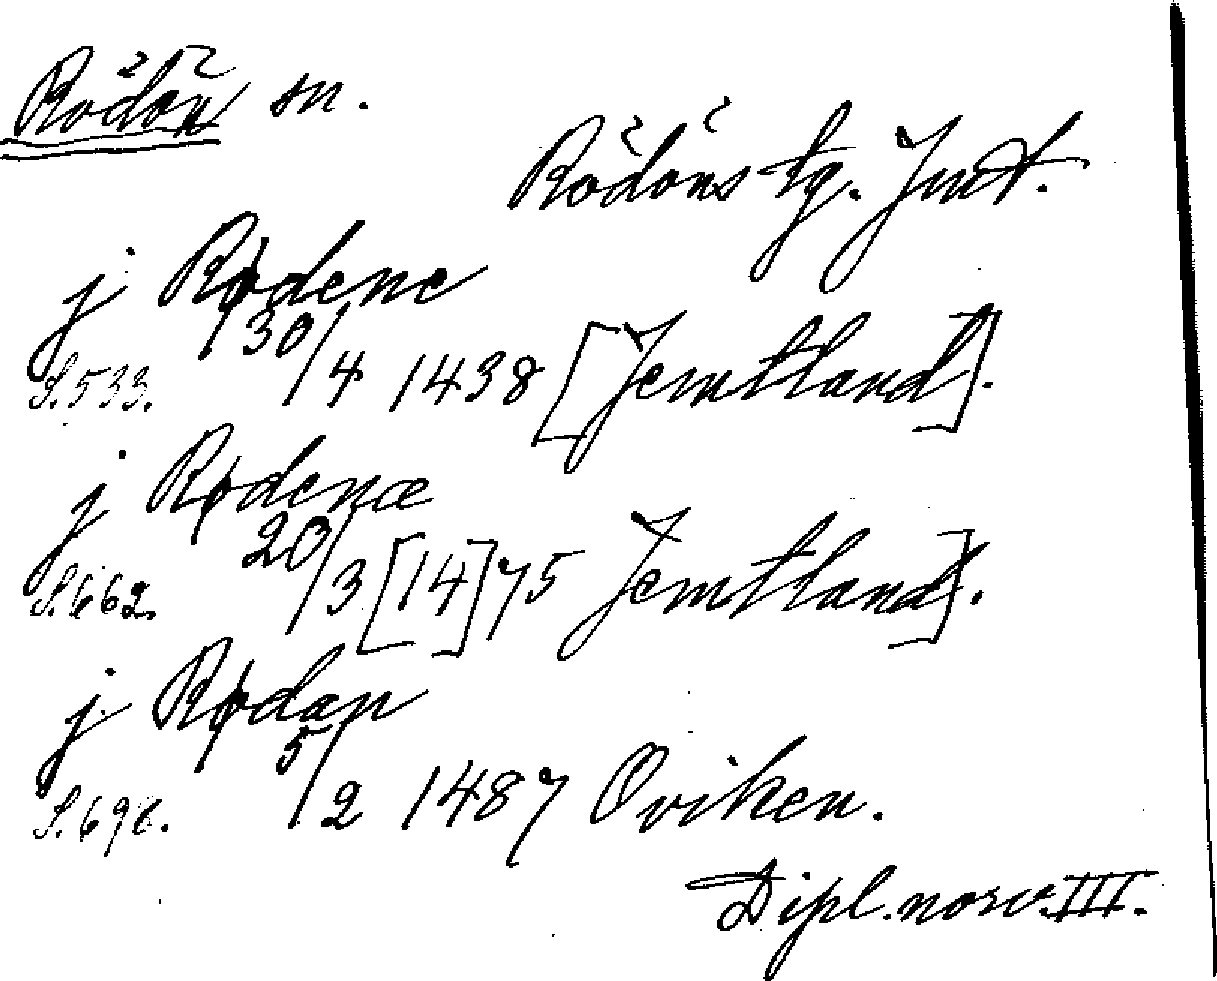 Rödön sn.
Rödöns tg. Jmt.
j Rødene
S. 533. 30/4 1438 [Jemtland].
j Rødenæ
S. 662. 20/3 [14]75 Jemtland].
j Rødan
5/2 1487 Oviken.
Dipl. norv. III.